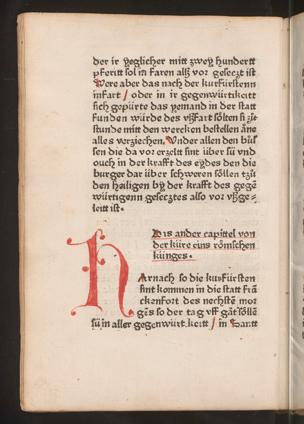 der ir yeglicher mitt zwey hundertt
pferitt sol in faren alß vor geseczt ist
Were aber das nach der kurfürstenn
infart / oder in ir gegenwürtikeitt
sich gepürte das yemand in der statt
funden würde des vßfart sölten sy zů
stunde mitt den wercken bestellen āne
alles verziehen. Vnder allen den bůs
sen die da vor erzelt sint über sü vnd
ouch in der krafft des eydes den die
burger dar über schweren söllen tzů
den heiligen by der krafft des gegē
würtigenn gesecztes also vor vßge-
leitt ist.
Das ander capittel von
der küre eins römschen
künges.
HArnach so die kurfürsten
sint kommen in die statt frā
ckenfort des nechstē mor
gēs so der tag vff gāt söllē
sü in aller gegenwürtikeitt / in Santt